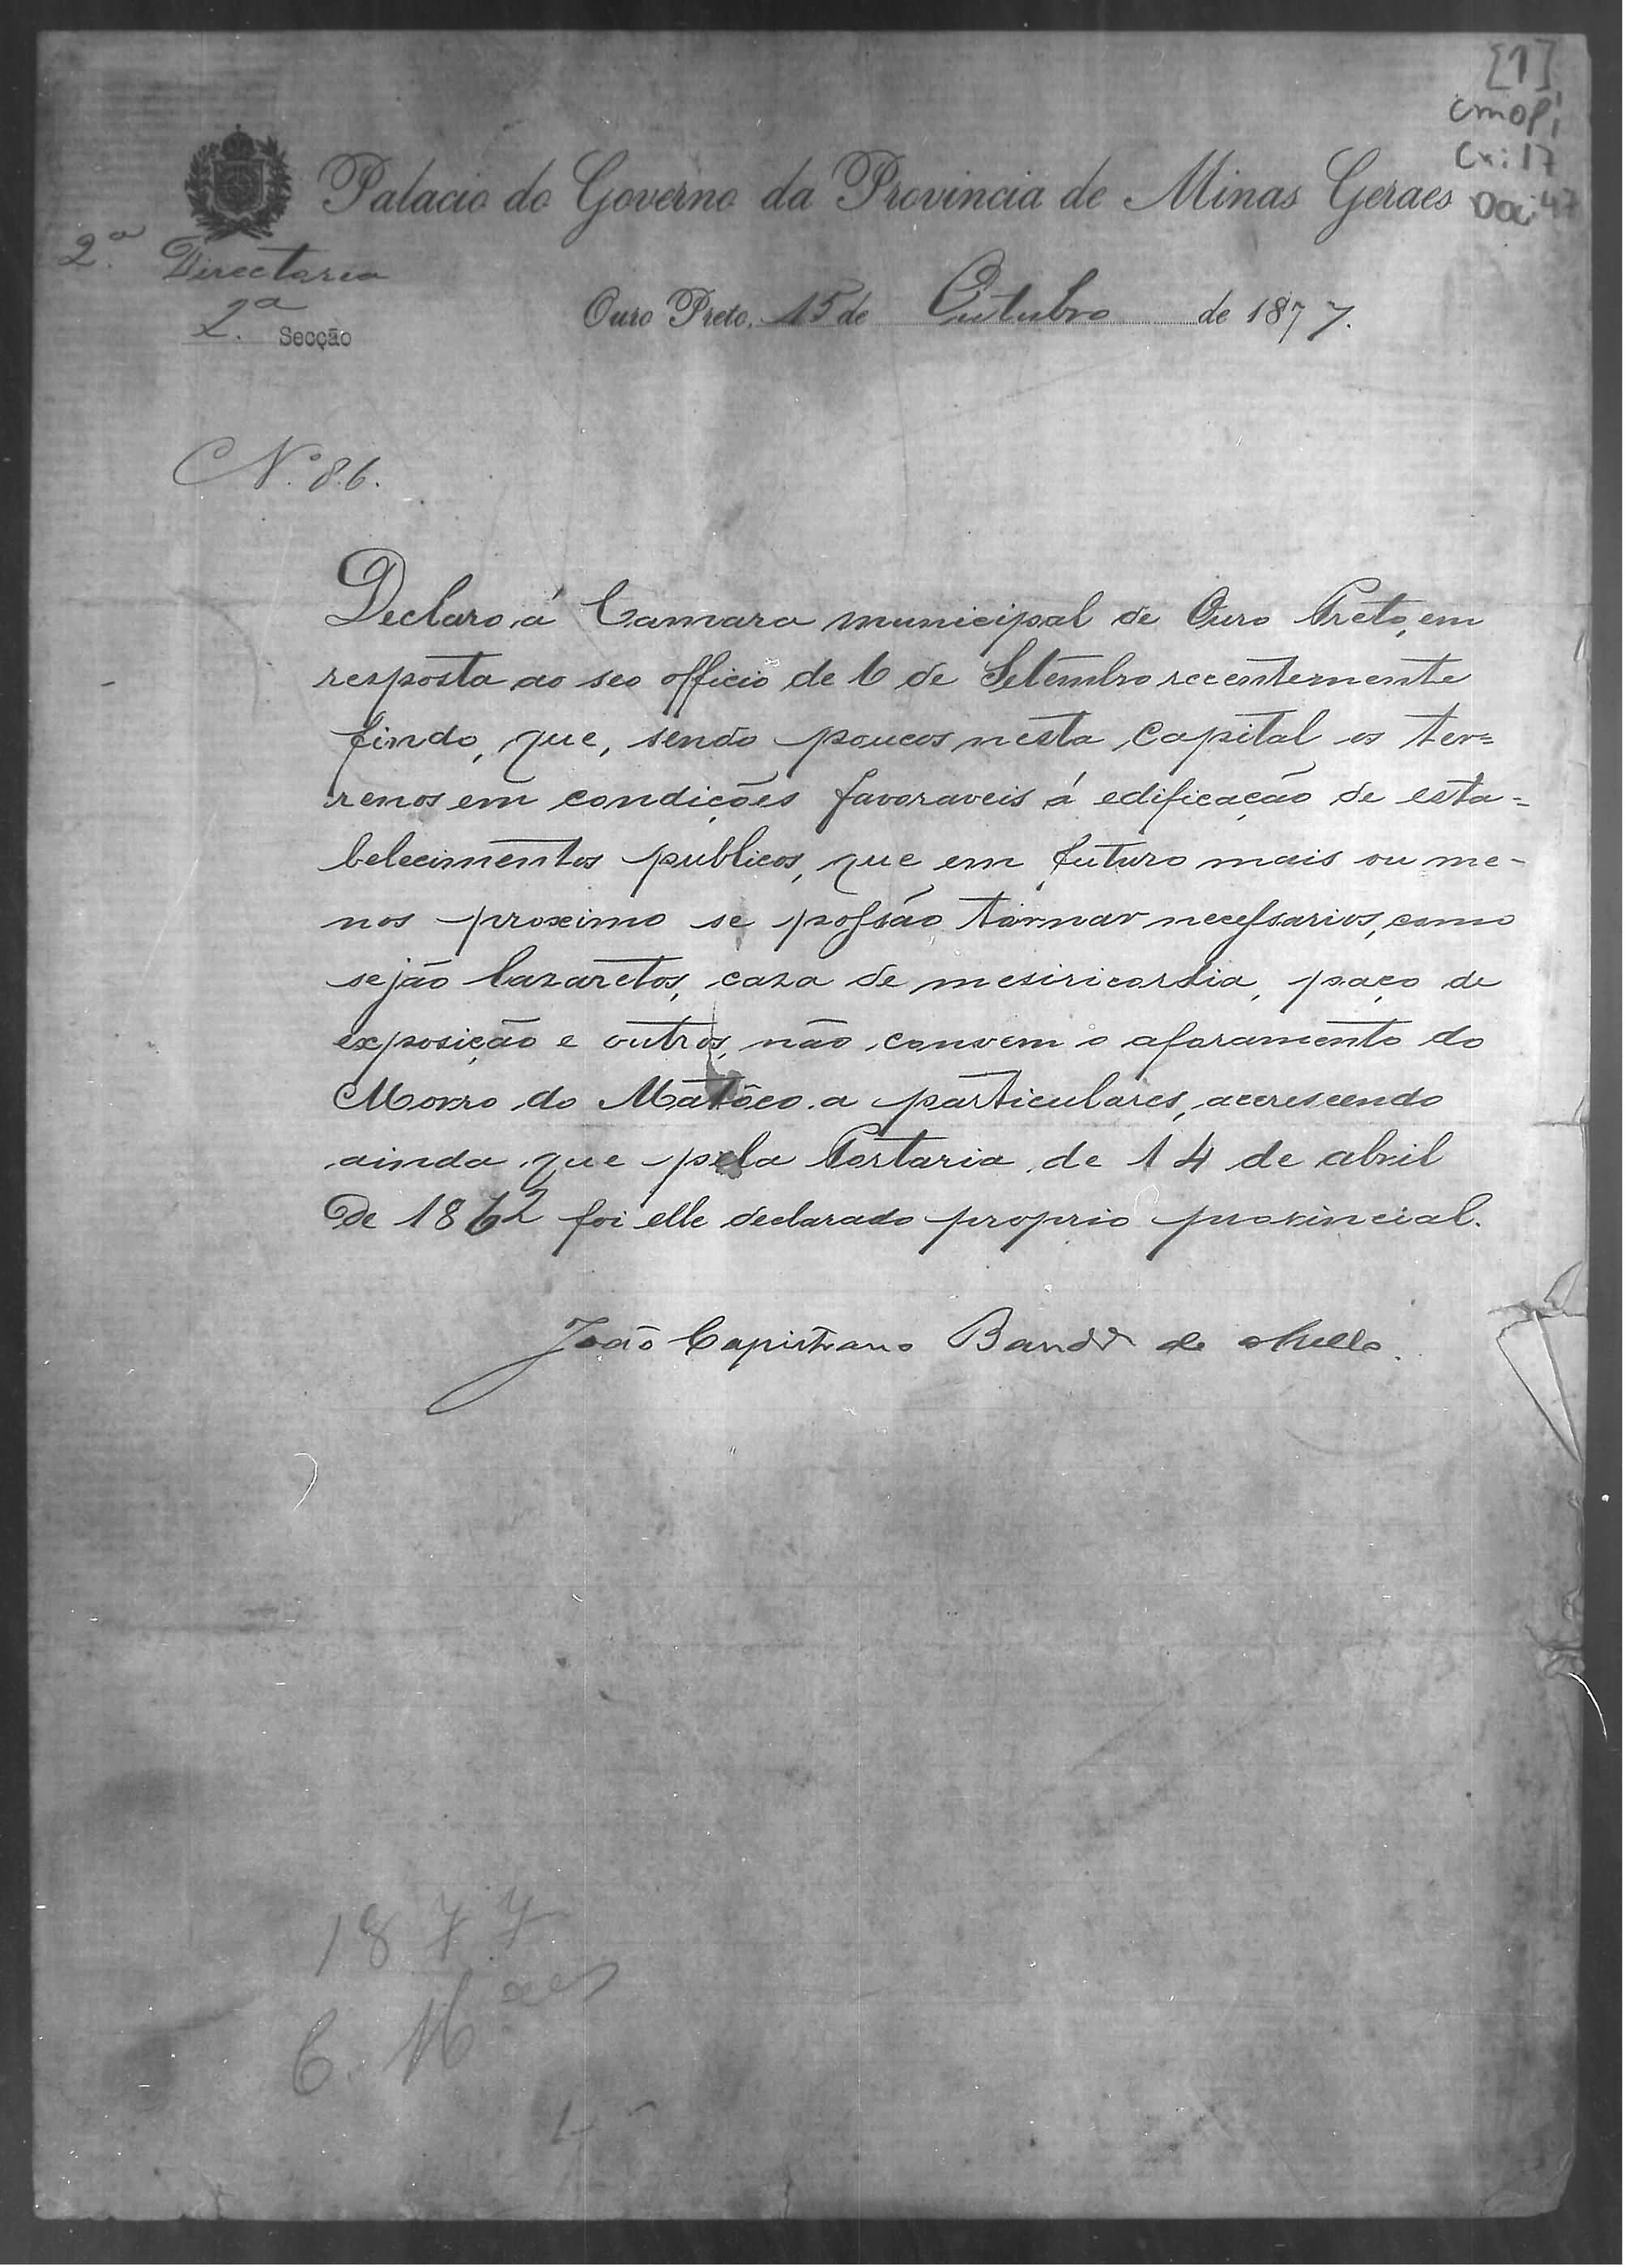 [1]
CMOP
Cx: 17
Doc: 47
Palacio do Governo da Provincia de Minas Geraes
2.ª Directoria
2.ª Secção
Ouro Preto, 15 de Outubro de 1877.
N.º 86.
Declaro á Camara municipal de Ouro Preto, em
resposta ao seo officio de 6 de Setembro recentemente
findo, que, sendo poucos nesta Capital os ter=
renos em condições favoraveis á edificação de esta=
belecimentos publicos, que em futuro mais ou me-
nos proximo se possão tornar necessarios, como
sejão lazaretos, caza de mesiricordia, paço de
exposição e outros, não convem o aforamento do
Morro do Matôco a particulares, accrescendo
ainda que pela Portaria de 14 de abril
De 1862 foi elle declarado proprio provincial.
João Capistrano Band.ª de Mello.
1877